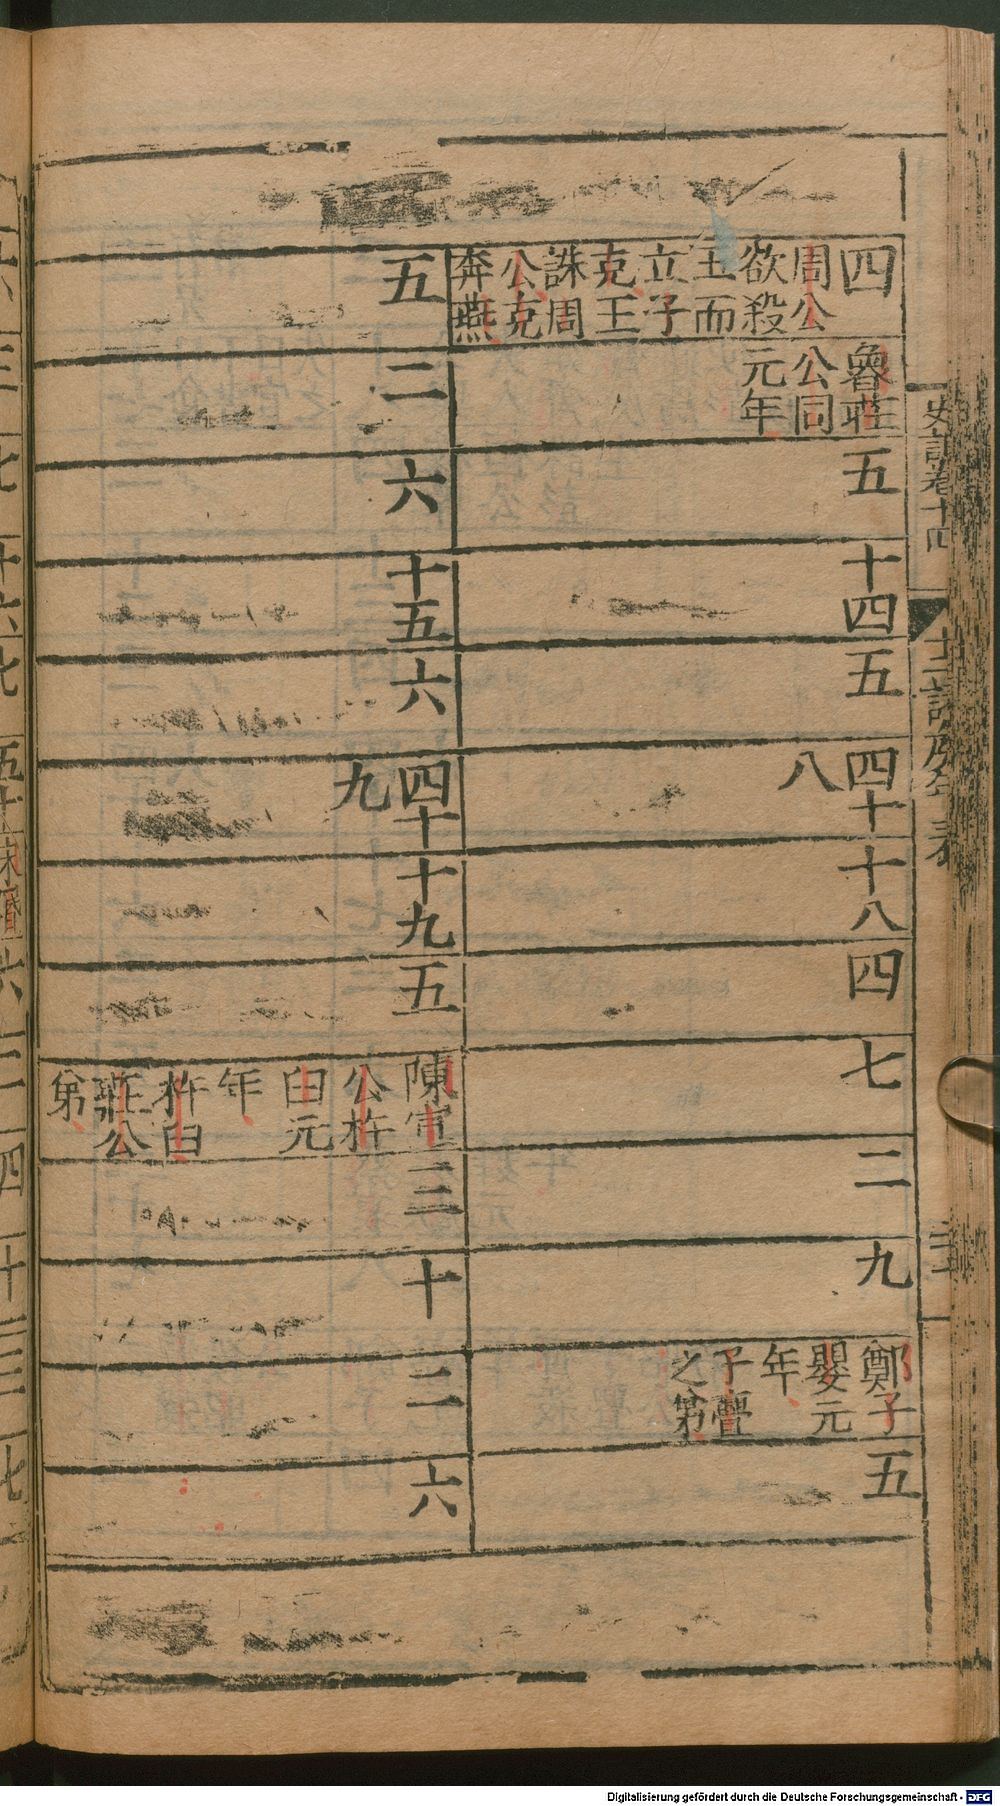 史記卷十四
十二諸侯年表
四
周公
欲殺
王而
立子
克王
誅周
公克
奔燕
魯莊
公同
元年
五
十四
五
四十
八
十八
四
七
二
九
鄭子
嬰元
年
子亹
之弟
五
五
二
六
十五
六
四十
九
十九
五
陳宣
公杵
臼元
年
杵臼
莊公
弟
三
十
二
六
Digitalisierung gefördert durch die Deutsche Forschungsgemeinschaft - DFG